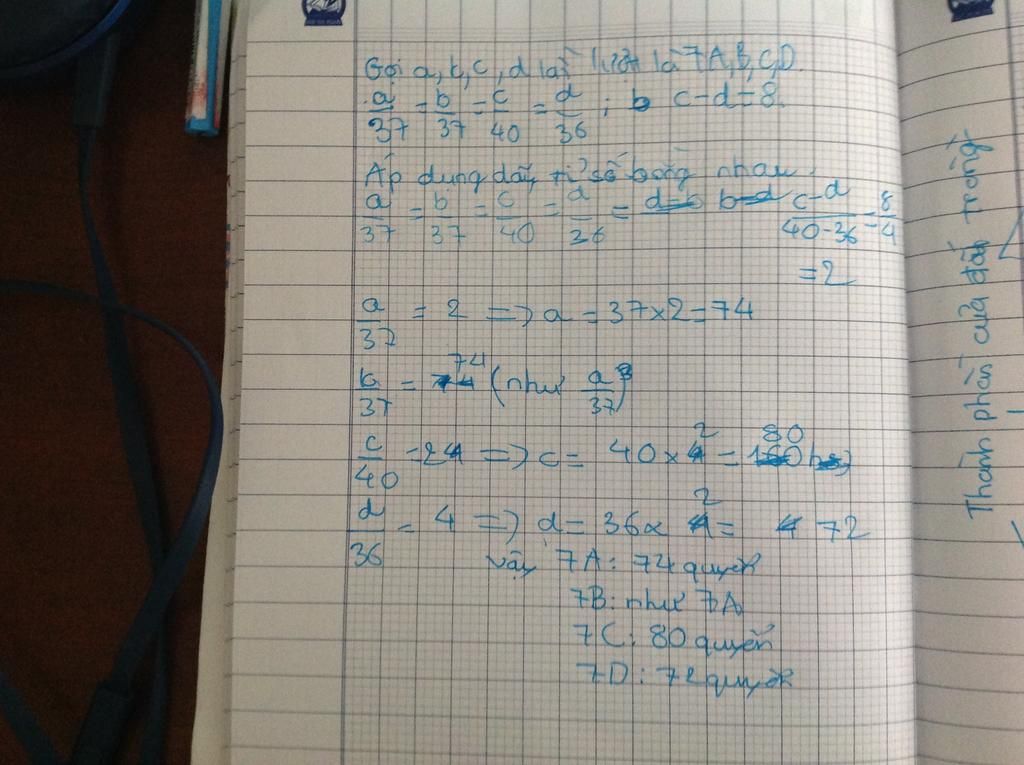 Gọi a, b, c, d lần lượt là 7A, B, C, D.
a/37 = b/37 = c/40 = d/36 ; c - d = 8.
Áp dụng dãy tỉ số bằng nhau,
a/37 = b/37 = c/40 = d/36 = c-d/40-36 = 8/4
= 2
a/37 = 2 => a = 37 x 2 = 74
b/37 = 74 (như a/37)
c/40 = 2 => c = 40 x 2 = 80
d/36 = 4 => d = 36 x 2 = 72
Vậy 7A: 74 quyển
7B: như 7A
7C: 80 quyển
7D: 72 quyển
Thành phần của đất trồng